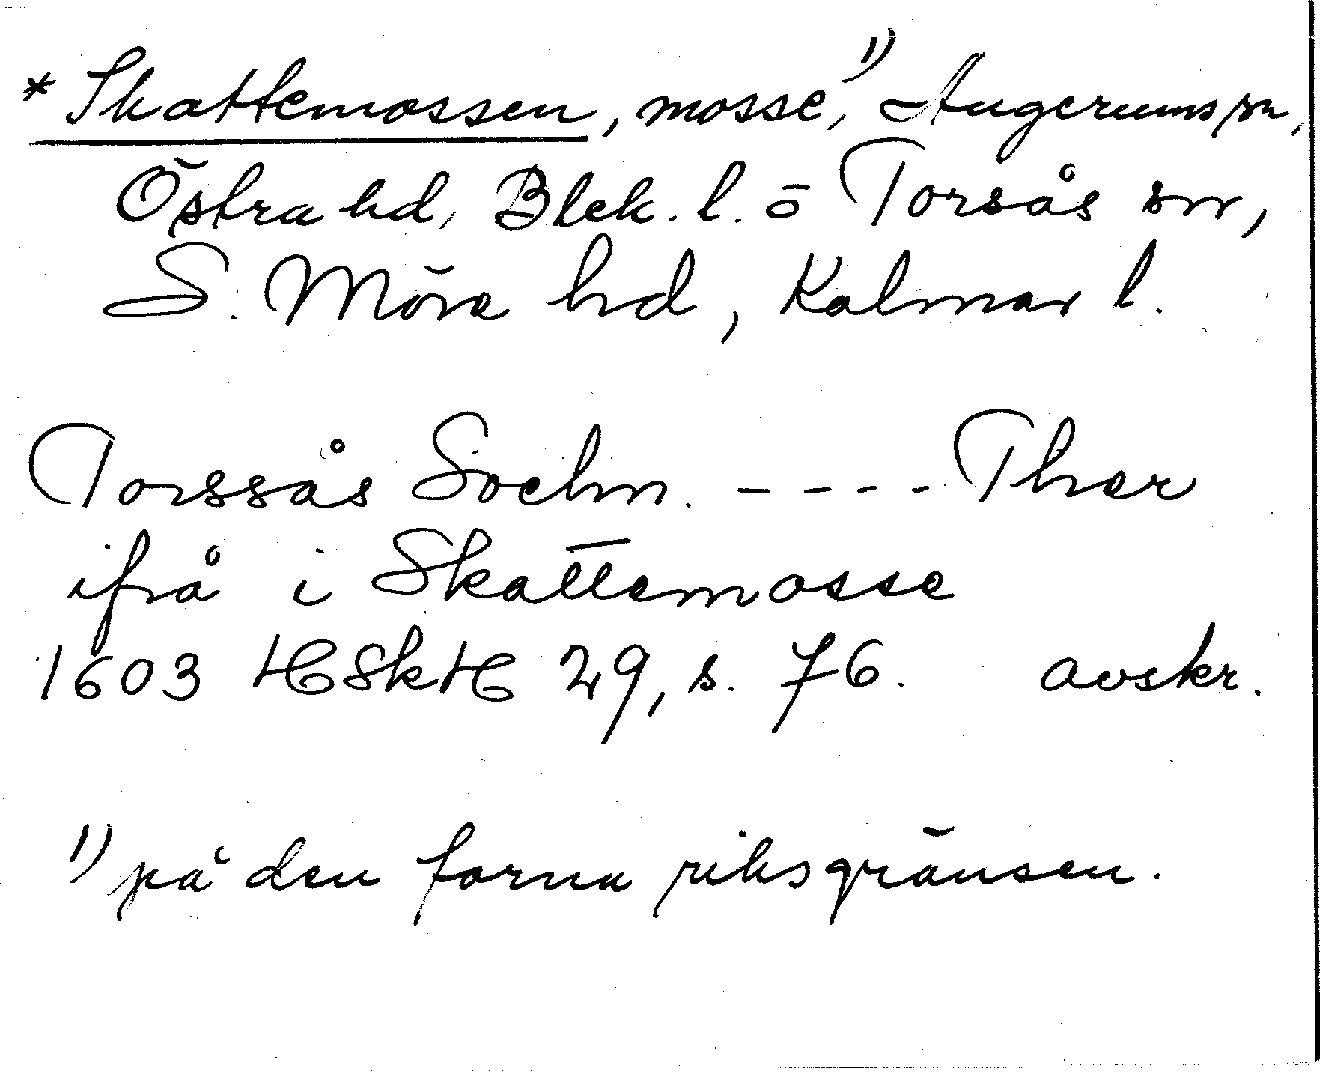 * Skattemossen, mosse,¹⁾ Augerums sn,
Östra hd, Blek. l. o̅ Torsås sn,
S. Möre hd, Kalmar l.
Torssås Sochn. - - - - Ther
ifrå i Skattemosse
1603 HSkH 29, s. 76. avskr.
¹⁾ på den forna riksgränsen.